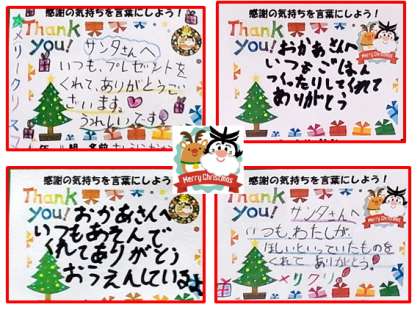 感謝の気持ちを言葉にしよう！
Thank you!
サンタさんへ
いつも、プレゼントを
くれて、ありがとうご
ざいます。
うれしいです
メリークリス
感謝の気持ちを言葉にしよう！
Thank you!
おかあさんへ
いつもごはん
つくったりしてくれて
ありがとう
Merry Christmas
Merry Christmas
感謝の気持ちを言葉にしよう！
Thank you!
おかあさんへ
いつもあそんで
くれてありがとう
おうえんしているよ
感謝の気持ちを言葉にしよう！
Thank you!
サンタさんへ
いつも、わたしが、
ほしいといっていたものを
くれて ありがとう。
メリクリ
Merry Christmas